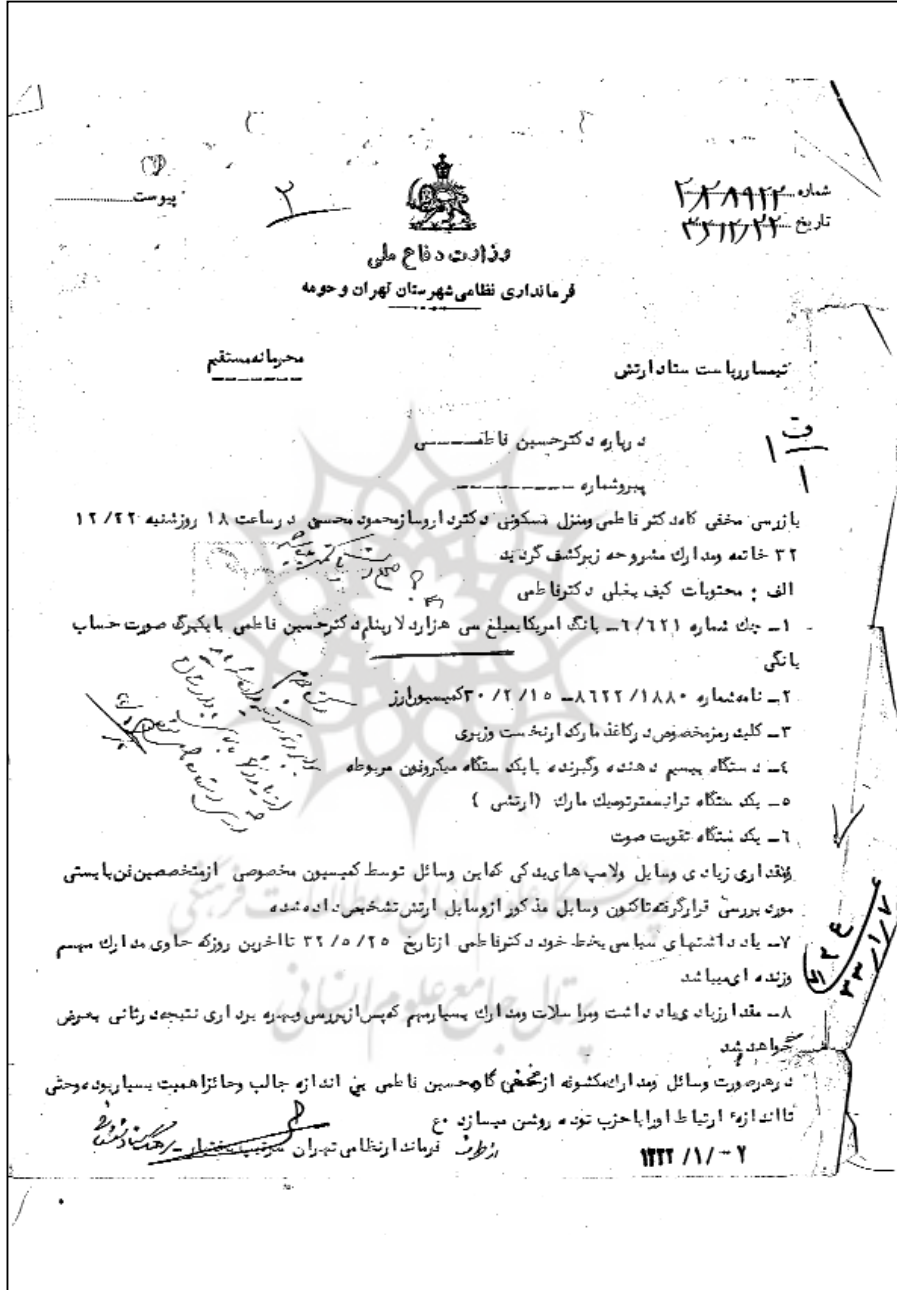 شماره ۲۸۹۲۲
تاریخ
پیوست
۲
وزارت دفاع ملی
فرمانداری نظامی شهرستان تهران و حومه
تیمسار ریاست ستاد ارتش
محرمانه مستقیم
درباره دکتر حسین فاطمــــی
پیرو شماره ـــــــــ
بازرسی مخفی گاه دکتر فاطمی ومنزل مسکونی دکتر داروساز محمود محسنی در ساعت ۱۸ روز شنبه ۱۲/۲۲
۳۲ خاتمه ومدارك مشروحه زیر کشف گردید
الف : محتویات کیف بغلی دکتر فاطمی
۱ــ چك شماره ۶/۶۲۱ــ بانك امریکا بمبلغ سی هزار دلار بنام دکتر حسین فاطمی بایکبرگ صورت حساب
بانگی
۲ــ نامه شماره ۸۶۲۲/۱۸۸۰ــ ۳۰/۲/۱۵ کمیسیون ارز
۳ــ کلید رمز مخصوص در کاغذ مارکدار نخست وزیری
۴ــ دستگاه بیسیم دهنده وگیرنده بایکدستگاه میکروفون مربوطه
۵ــ یکدستگاه ترانسمتر تومیك مارك (ارتشی )
۶ــ یکدستگاه تقویت صوت
ومقداری زیادی وسایل ولامپ های یدکی که این وسائل توسط کمیسیون مخصوصی از متخصصین فن بایستی
مورد بررسی قرار گرفته تاکنون وسایل مذکور از وسایل ارتش تشخیص داده شده
۷ــ یادداشتهای سیاسی بخط خود دکتر فاطمی از تاریخ ۳۲/۵/۲۵ تا آخرین روز که حاوی مدارك مهم
وزنده ای میباشد
۸ــ مقدار زیادی یادداشت ومراسلات ومدارك بسیار مهم که پس از بررسی وبهره برداری نتیجه در ثانی بعرض
خواهد شد
در هر صورت وسائل ومدارك مکشوفه از مخفی گاه حسین فاطمی بی اندازه جالب وحائز اهمیت بسیار بوده وحتی
تا اندازهٴ ارتباط او را با حزب توده روشن میسازد ۰ع
از طرف فرماندار نظامی تهران سرتیپ بختیار ــ سرهنگ
۷ــ /۱/ ۱۳۳۳
ف
۱
۱
۳۳/۱/۷
پژوهشگاه علوم انسانی و مطالعات فرهنگی
پرتال جامع علوم انسانی